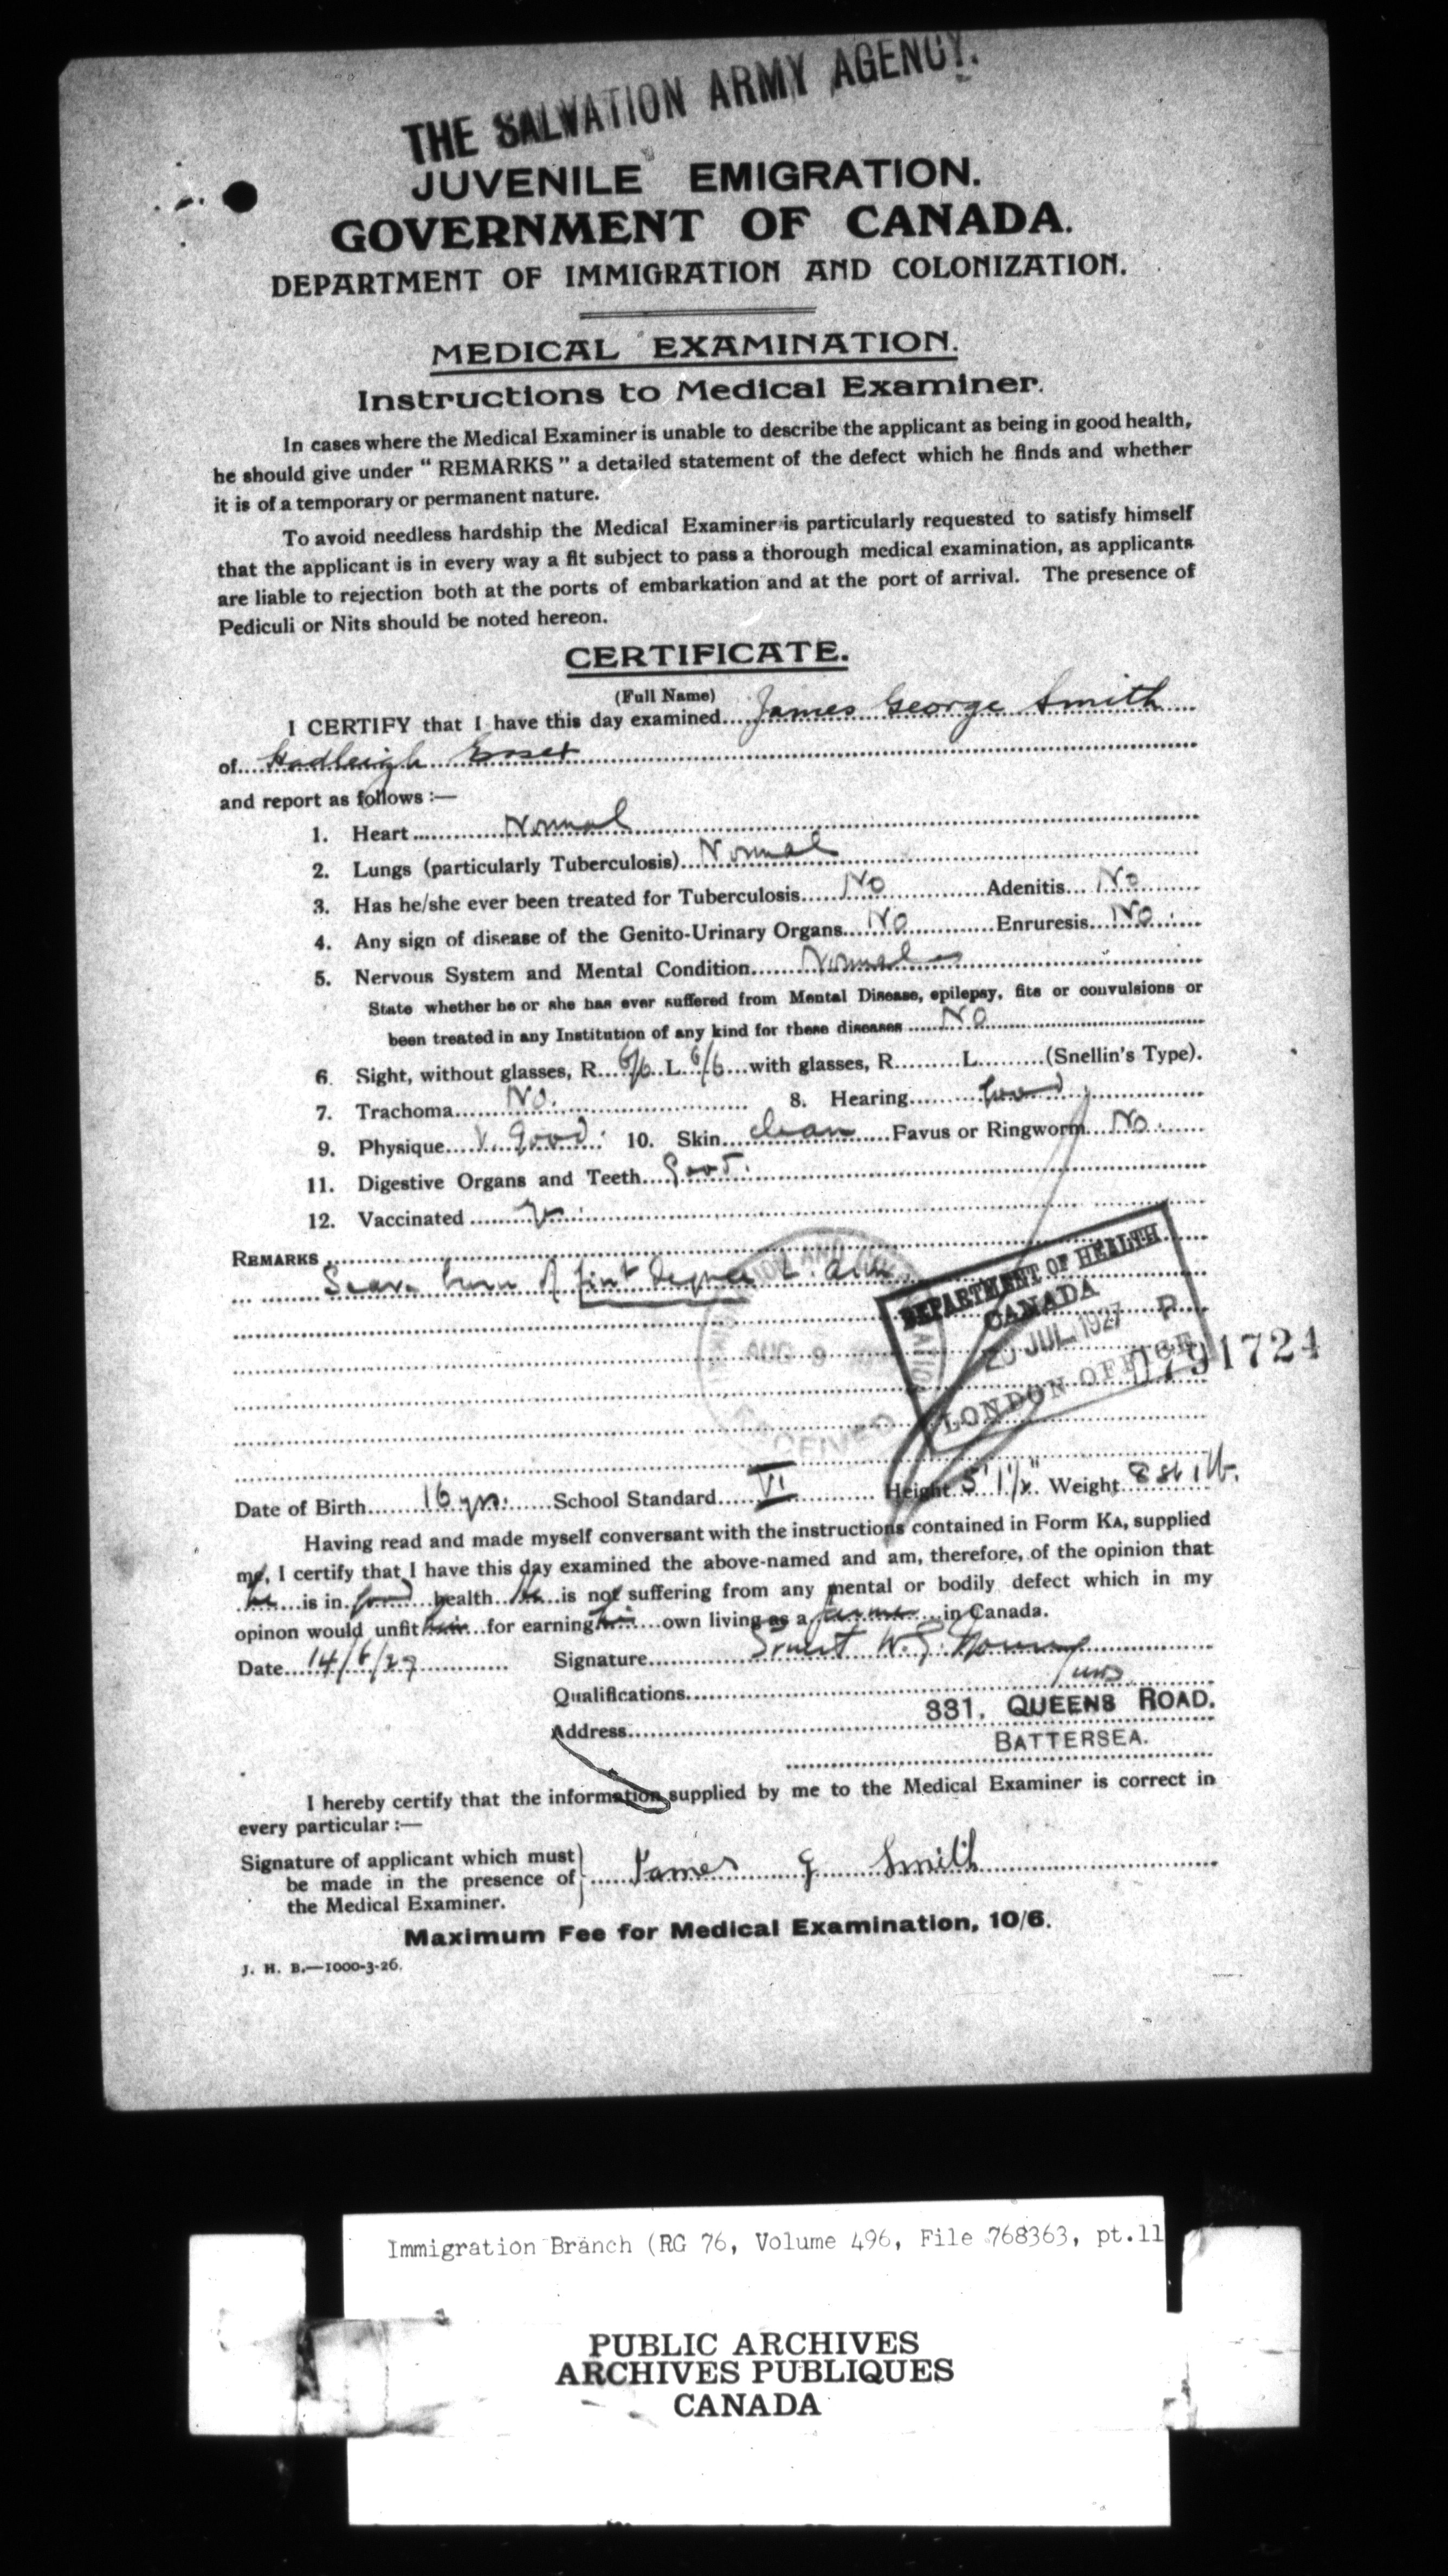 THE SALVATION ARMY AGENCY.
JUVENILE EMIGRATION.
GOVERNMENT OF CANADA.
DEPARTMENT OF IMMIGRATION AND COLONIZATION.
MEDICAL EXAMINATION.
Instructions to Medical Examiner.
In cases where the Medical Examiner is unable to describe the applicant as being in good health,
he should give under " REMARKS " a detailed statement of the defect which he finds and whether
it is of a temporary or permanent nature.
To avoid needless hardship the Medical Examiner is particularly requested to satisfy himself
that the applicant is in every way a fit subject to pass a thorough medical examination, as applicants
are liable to rejection both at the ports of embarkation and at the port of arrival. The presence of
Pediculi or Nits should be noted hereon.
CERTIFICATE.
(Full Name)
I CERTIFY that I have this day examined James George Smith
of Hadleigh Essex
and report as follows :—
1. Heart Normal
2. Lungs (particularly Tuberculosis) Normal
3. Has he/she ever been treated for Tuberculosis No Adenitis No
4. Any sign of disease of the Genito-Urinary Organs No Enruresis No
5. Nervous System and Mental Condition Normal
State whether he or she has ever suffered from Mental Disease, epilepsy, fits or convulsions or
been treated in any Institution of any kind for these diseases No
6. Sight, without glasses, R 6/6 L 6/6 with glasses, R L (Snellin's Type).
7. Trachoma No. 8. Hearing Good
9. Physique V. Good. 10. Skin clean Favus or Ringworm No.
11. Digestive Organs and Teeth Good.
12. Vaccinated
REMARKS
Scar burn of first degree L. arm
DEPARTMENT OF HEALTH
CANADA
JUL 1927 P
LONDON OFFICE
AUG 9
RECEIVED
0791724
Date of Birth 16 yrs. School Standard VI Height 5' 1½" Weight 8 st 1 lb.
Having read and made myself conversant with the instructions contained in Form KA, supplied
me, I certify that I have this day examined the above-named and am, therefore, of the opinion that
he is in good health he is not suffering from any mental or bodily defect which in my
opinon would unfit him for earning his own living as a farmer in Canada.
Date 14/6/27 Signature
Qualifications
Address 331, QUEENS ROAD.
BATTERSEA.
I hereby certify that the information supplied by me to the Medical Examiner is correct in
every particular :—
Signature of applicant which must
be made in the presence of
the Medical Examiner.
James G Smith
Maximum Fee for Medical Examination, 10/6.
J. H. B.—1000-3-26.
Immigration Branch (RG 76, Volume 496, File 768363, pt.11
PUBLIC ARCHIVES
ARCHIVES PUBLIQUES
CANADA